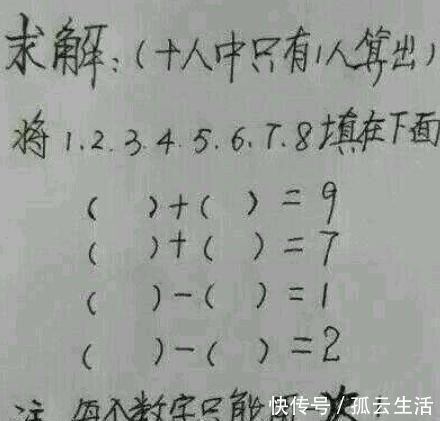 求解:(十人中只有1人算出)
将1.2.3.4.5.6.7.8填在下面
( )+( )=9
( )+( )=7
( )-( )=1
( )-( )=2
注 每个数字只能
快传号/孤云生活